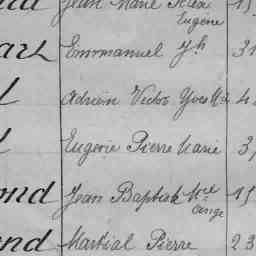 Jean Marie Alex
Eugène
Emmanuel Jh
Adrien Victor Yves
Eugene Pierre Marie
3
ond Jean Baptiste 15
Ange
Martial Pierre 23